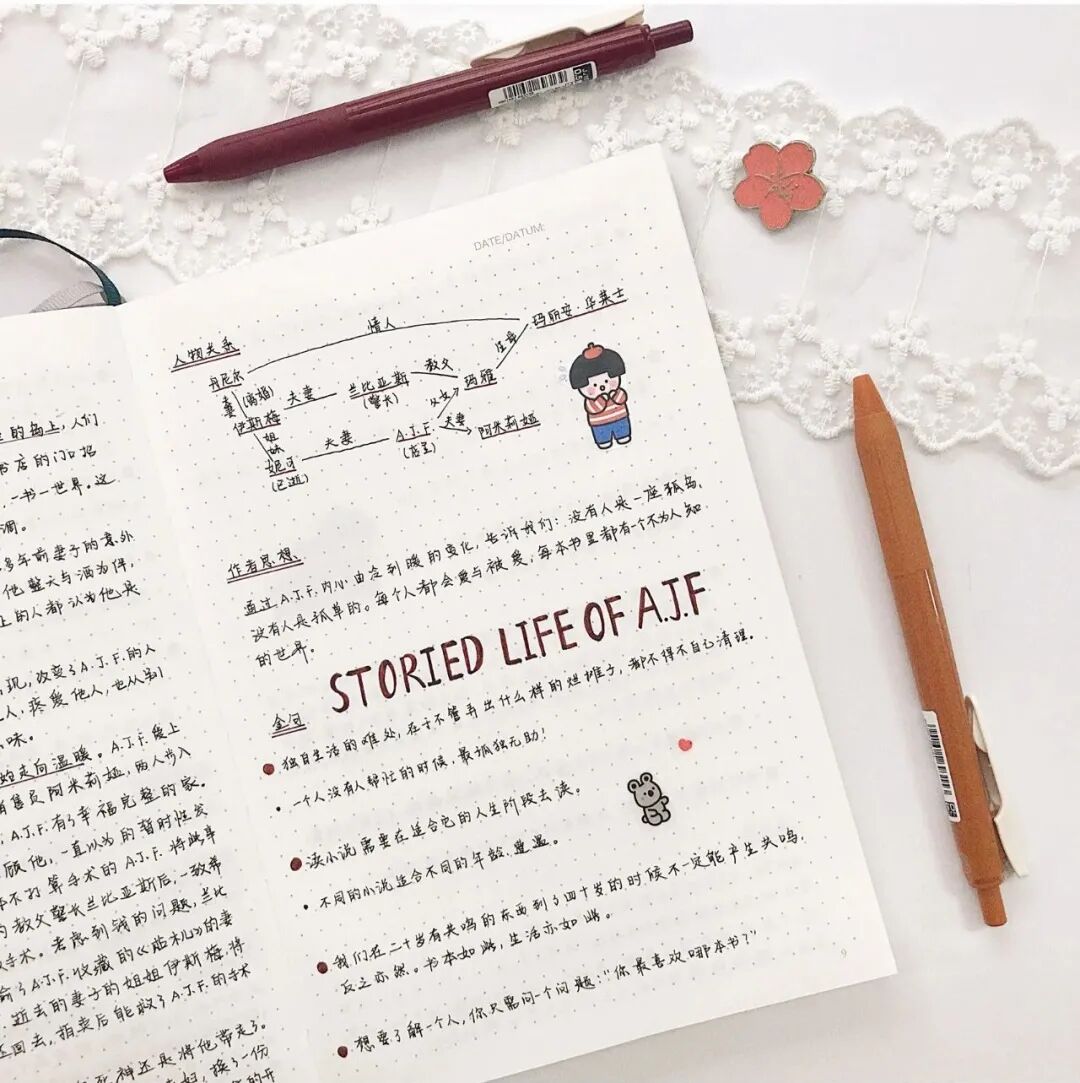 DATE/DATUM:
人物关系
情人
玛丽安·华莱士
丹尼尔
生母
妻(离婚)
夫妻
兰比亚斯
(警长)
教父
玛雅
伊斯梅
父女
姐妹
夫妻
A.J.F.
(店主)
夫妻
阿米莉娅
妮可
(已逝)
作者思想
通过A.J.F.内心由冷到暖的变化,告诉我们:没有人是一座孤岛,
没有人是孤单的。每个人都会爱与被爱,每本书里都有一个不为人知
的世界。
STORIED LIFE OF A.J.F
金句
独自生活的难处,在于不管弄出什么样的烂摊子,都不得不自己清理。
一个人没有人帮忙的时候,最孤独无助!
读小说需要在适合它的人生阶段去读。
不同的小说适合不同的年龄、
我们在二十岁有共鸣的东西到了四十岁的时候不一定能产生共鸣,
反之亦然。书本如此,生活亦如此。
想要了解一个人,你只需问一个问题:"你最喜欢哪本书?"
9
的岛上,人们
书店的门口招
一书一世界。这
调。
多年前妻子的意外
他整天与酒为伴,
上的人都认为他是
现,改变了A.J.F.的人
人,疼爱他人,也从别
味。
走向温暖。A.J.F.爱上
销售员阿米莉娅,两人步入
A.J.F.有了幸福完整的家。
顾他,一直以为的暂时性失
不打算手术的A.J.F.将此事
教父警长兰比亚斯后,一致希
手术。考虑到钱的问题,兰比
偷了A.J.F.收藏的《帖木儿》的妻
逝去的妻子的姐姐伊斯梅,将
还回去,拍卖后能救了A.J.F.的手术
死神还是将他带走了。
换了一份
的开